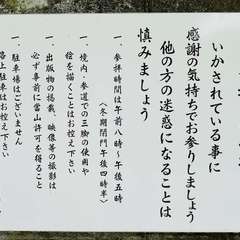 いかされている事に
感謝の気持ちでお参りしましょう
他の方の迷惑になることは
慎みましょう
一、参拝時間は午前八時〜午後五時
(冬期閉門午後四時半)
一、境内、参道での三脚の使用や
絵を描くことはお控え下さい
一、出版物の掲載、映像等の撮影は
必ず事前に当山許可を得ること
一、駐車場はございません
路上駐車はお控え下さい